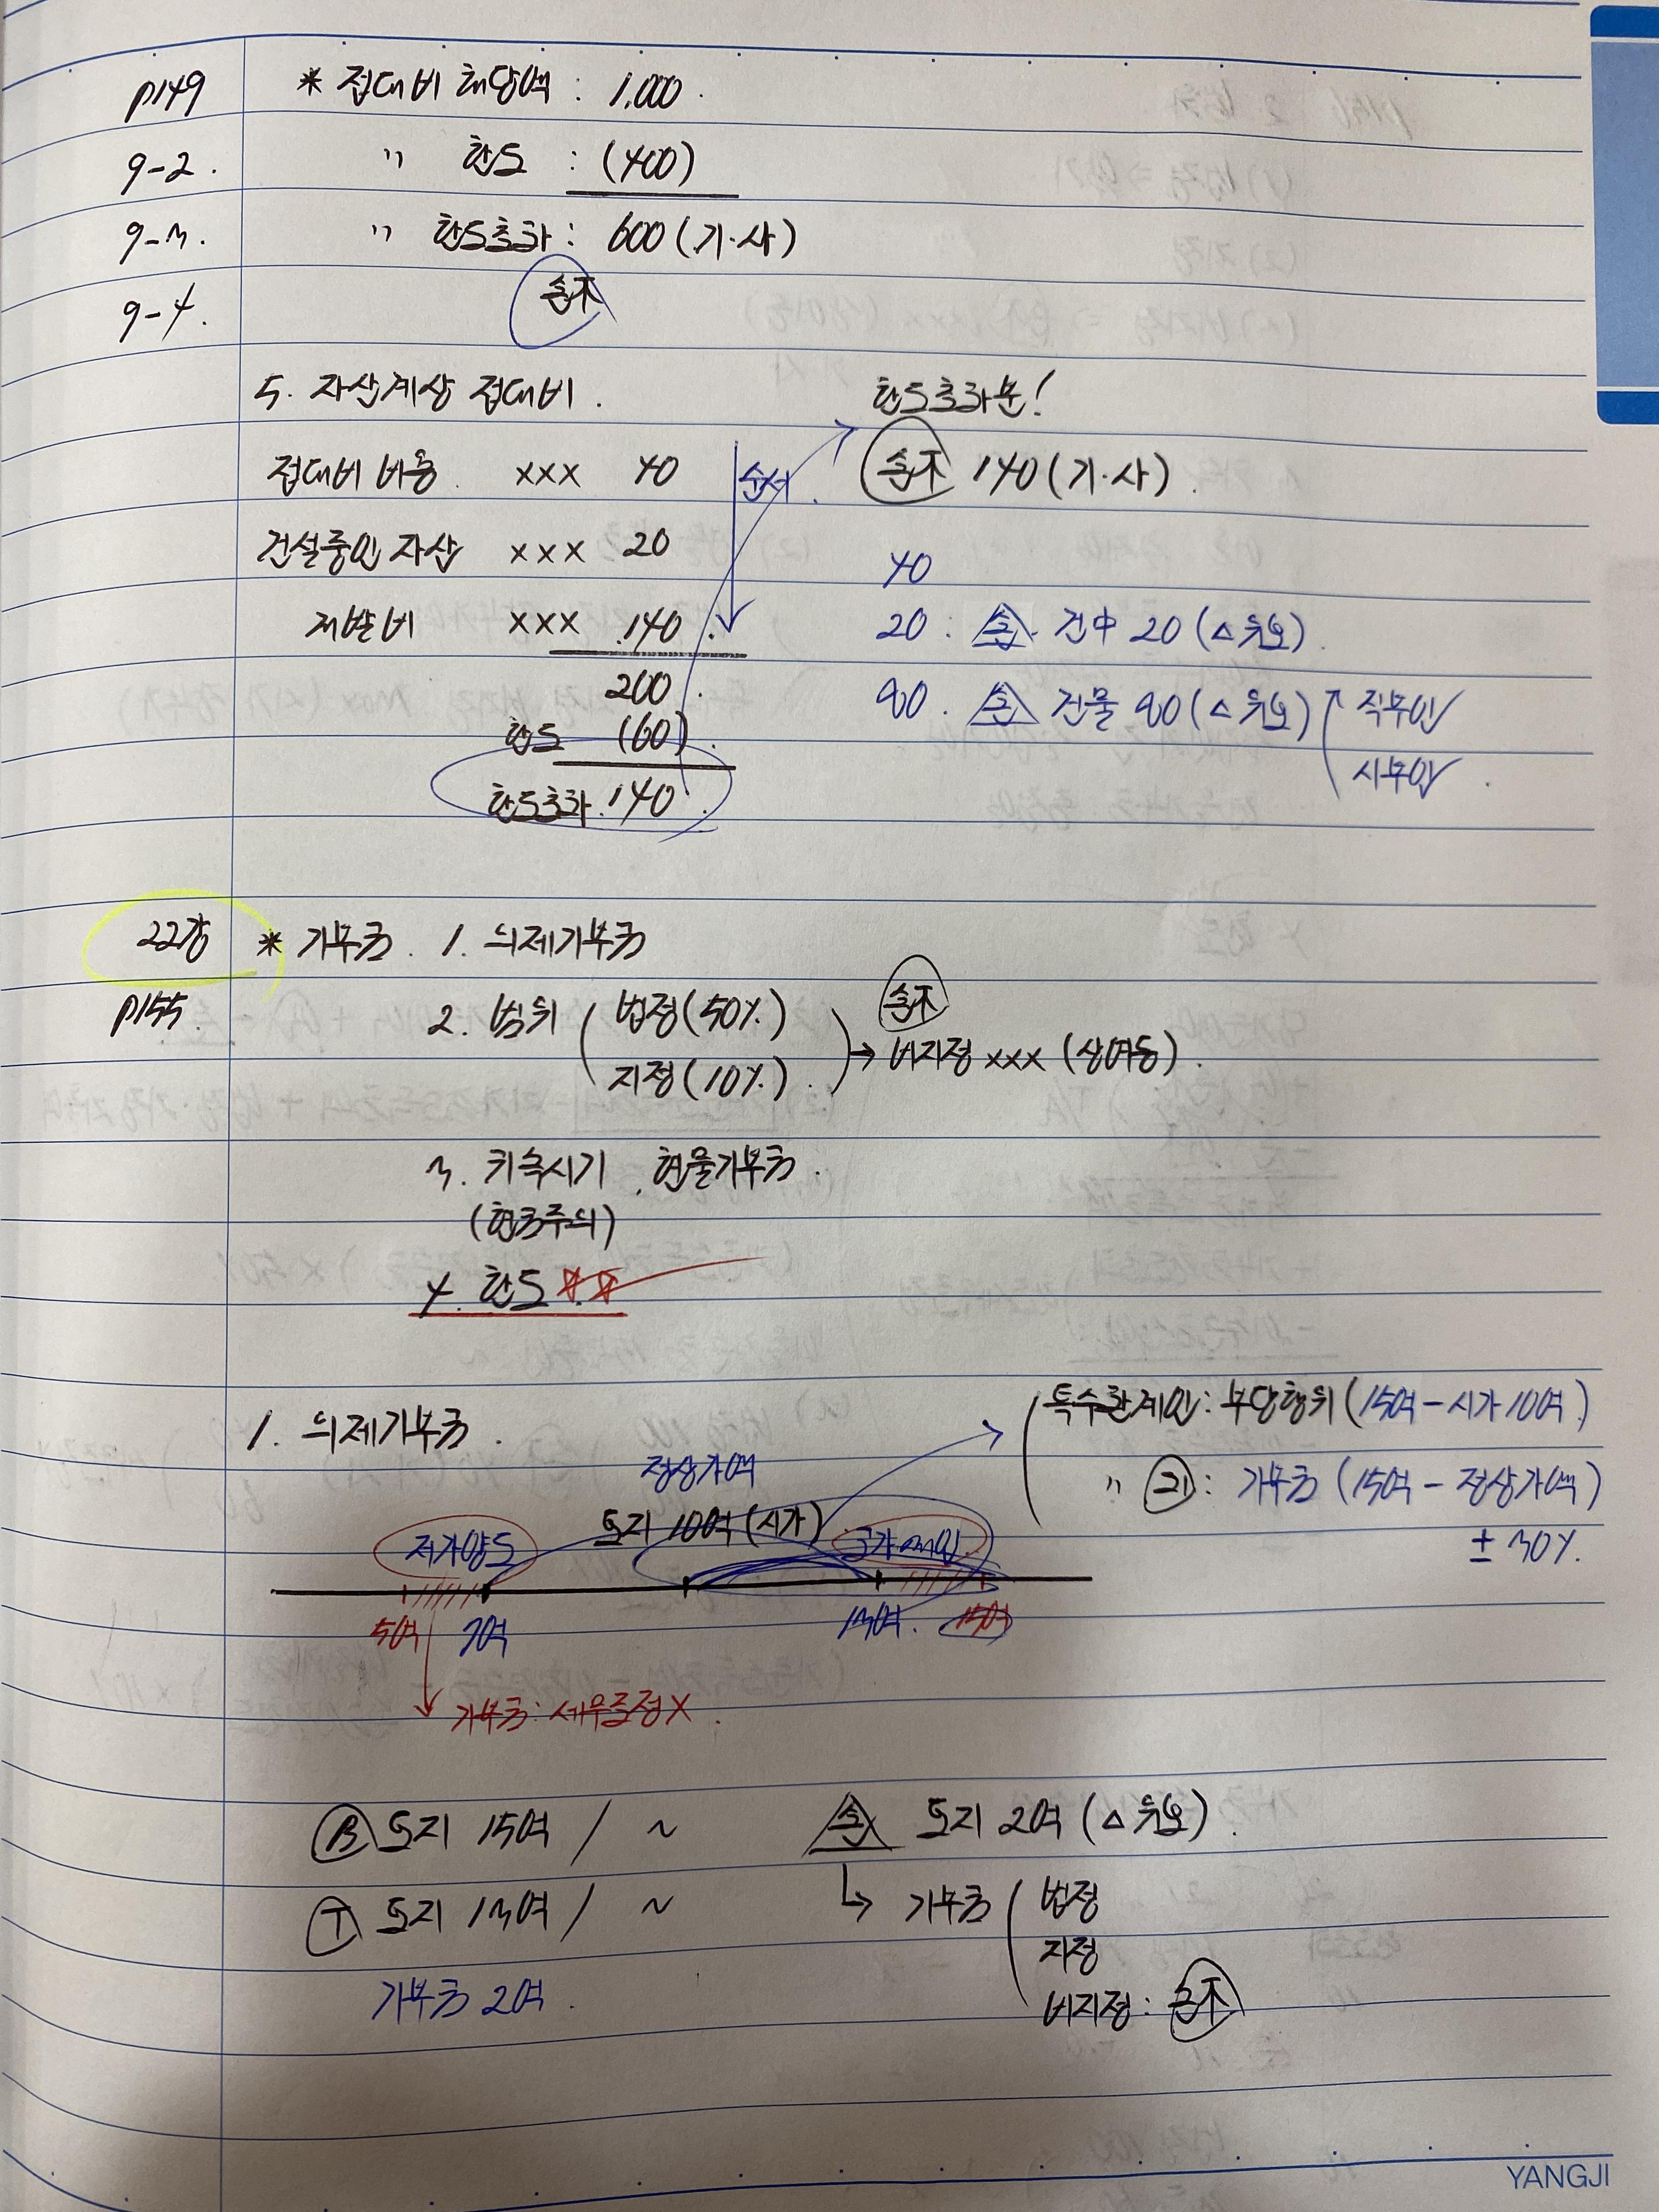 p149 * 접대비 해당액 : 1,000
9-2. " 한도 : (400)
9-3. " 한도초과 : 600 (기·사)
9-4. 손不
5. 자산계상 접대비. 한도초과분!
접대비 비용 xxx 40 순서. 손不 140 (기·사).
건설중인 자산 xxx 20 40
개발비 xxx 140. 20 : 손 건中 20 (△유보)
200. 80. 손 건물 80 (△유보) 직부인
한도 (60). 사부인
한도초과 140
22강 * 기부금. 1. 의제기부금
p155. 2. 범위 법정(50%) 손不
지정(10%) → 비지정 xxx (상여등).
3. 귀속시기, 현물기부금.
(현금주의)
4. 한도 ☆☆
1. 의제기부금. 특수관계인: 부당행위 (15억-시가 10억)
정상가액 " 외: 기부금 (15억-정상가액)
저가양도 토지 10억 (시가) 고가매입 ± 30%.
5억 7억 13억. 15억
기부금: 세무조정 X.
B 토지 15억 / ~ 손 토지 2억 (△유보).
T 토지 13억 / ~ ↳ 기부금 법정
지정
기부금 2억. 비지정: 손不
YANGJI